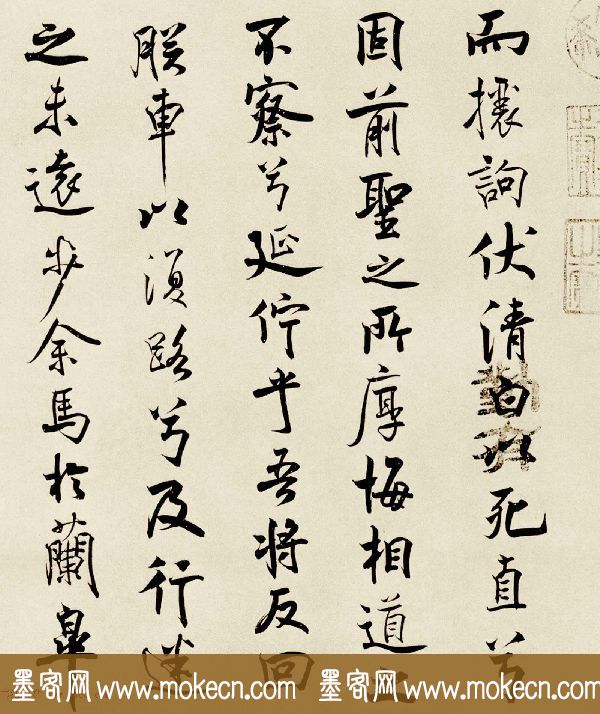 而攘訽伏清白以死直兮
固前聖之所厚悔相道之
不察兮延佇乎吾將反回
朕車以復路兮及行迷
之未遠步余馬於蘭皋
墨客网 www.mokecn.com 墨客网 www.mokecn.com